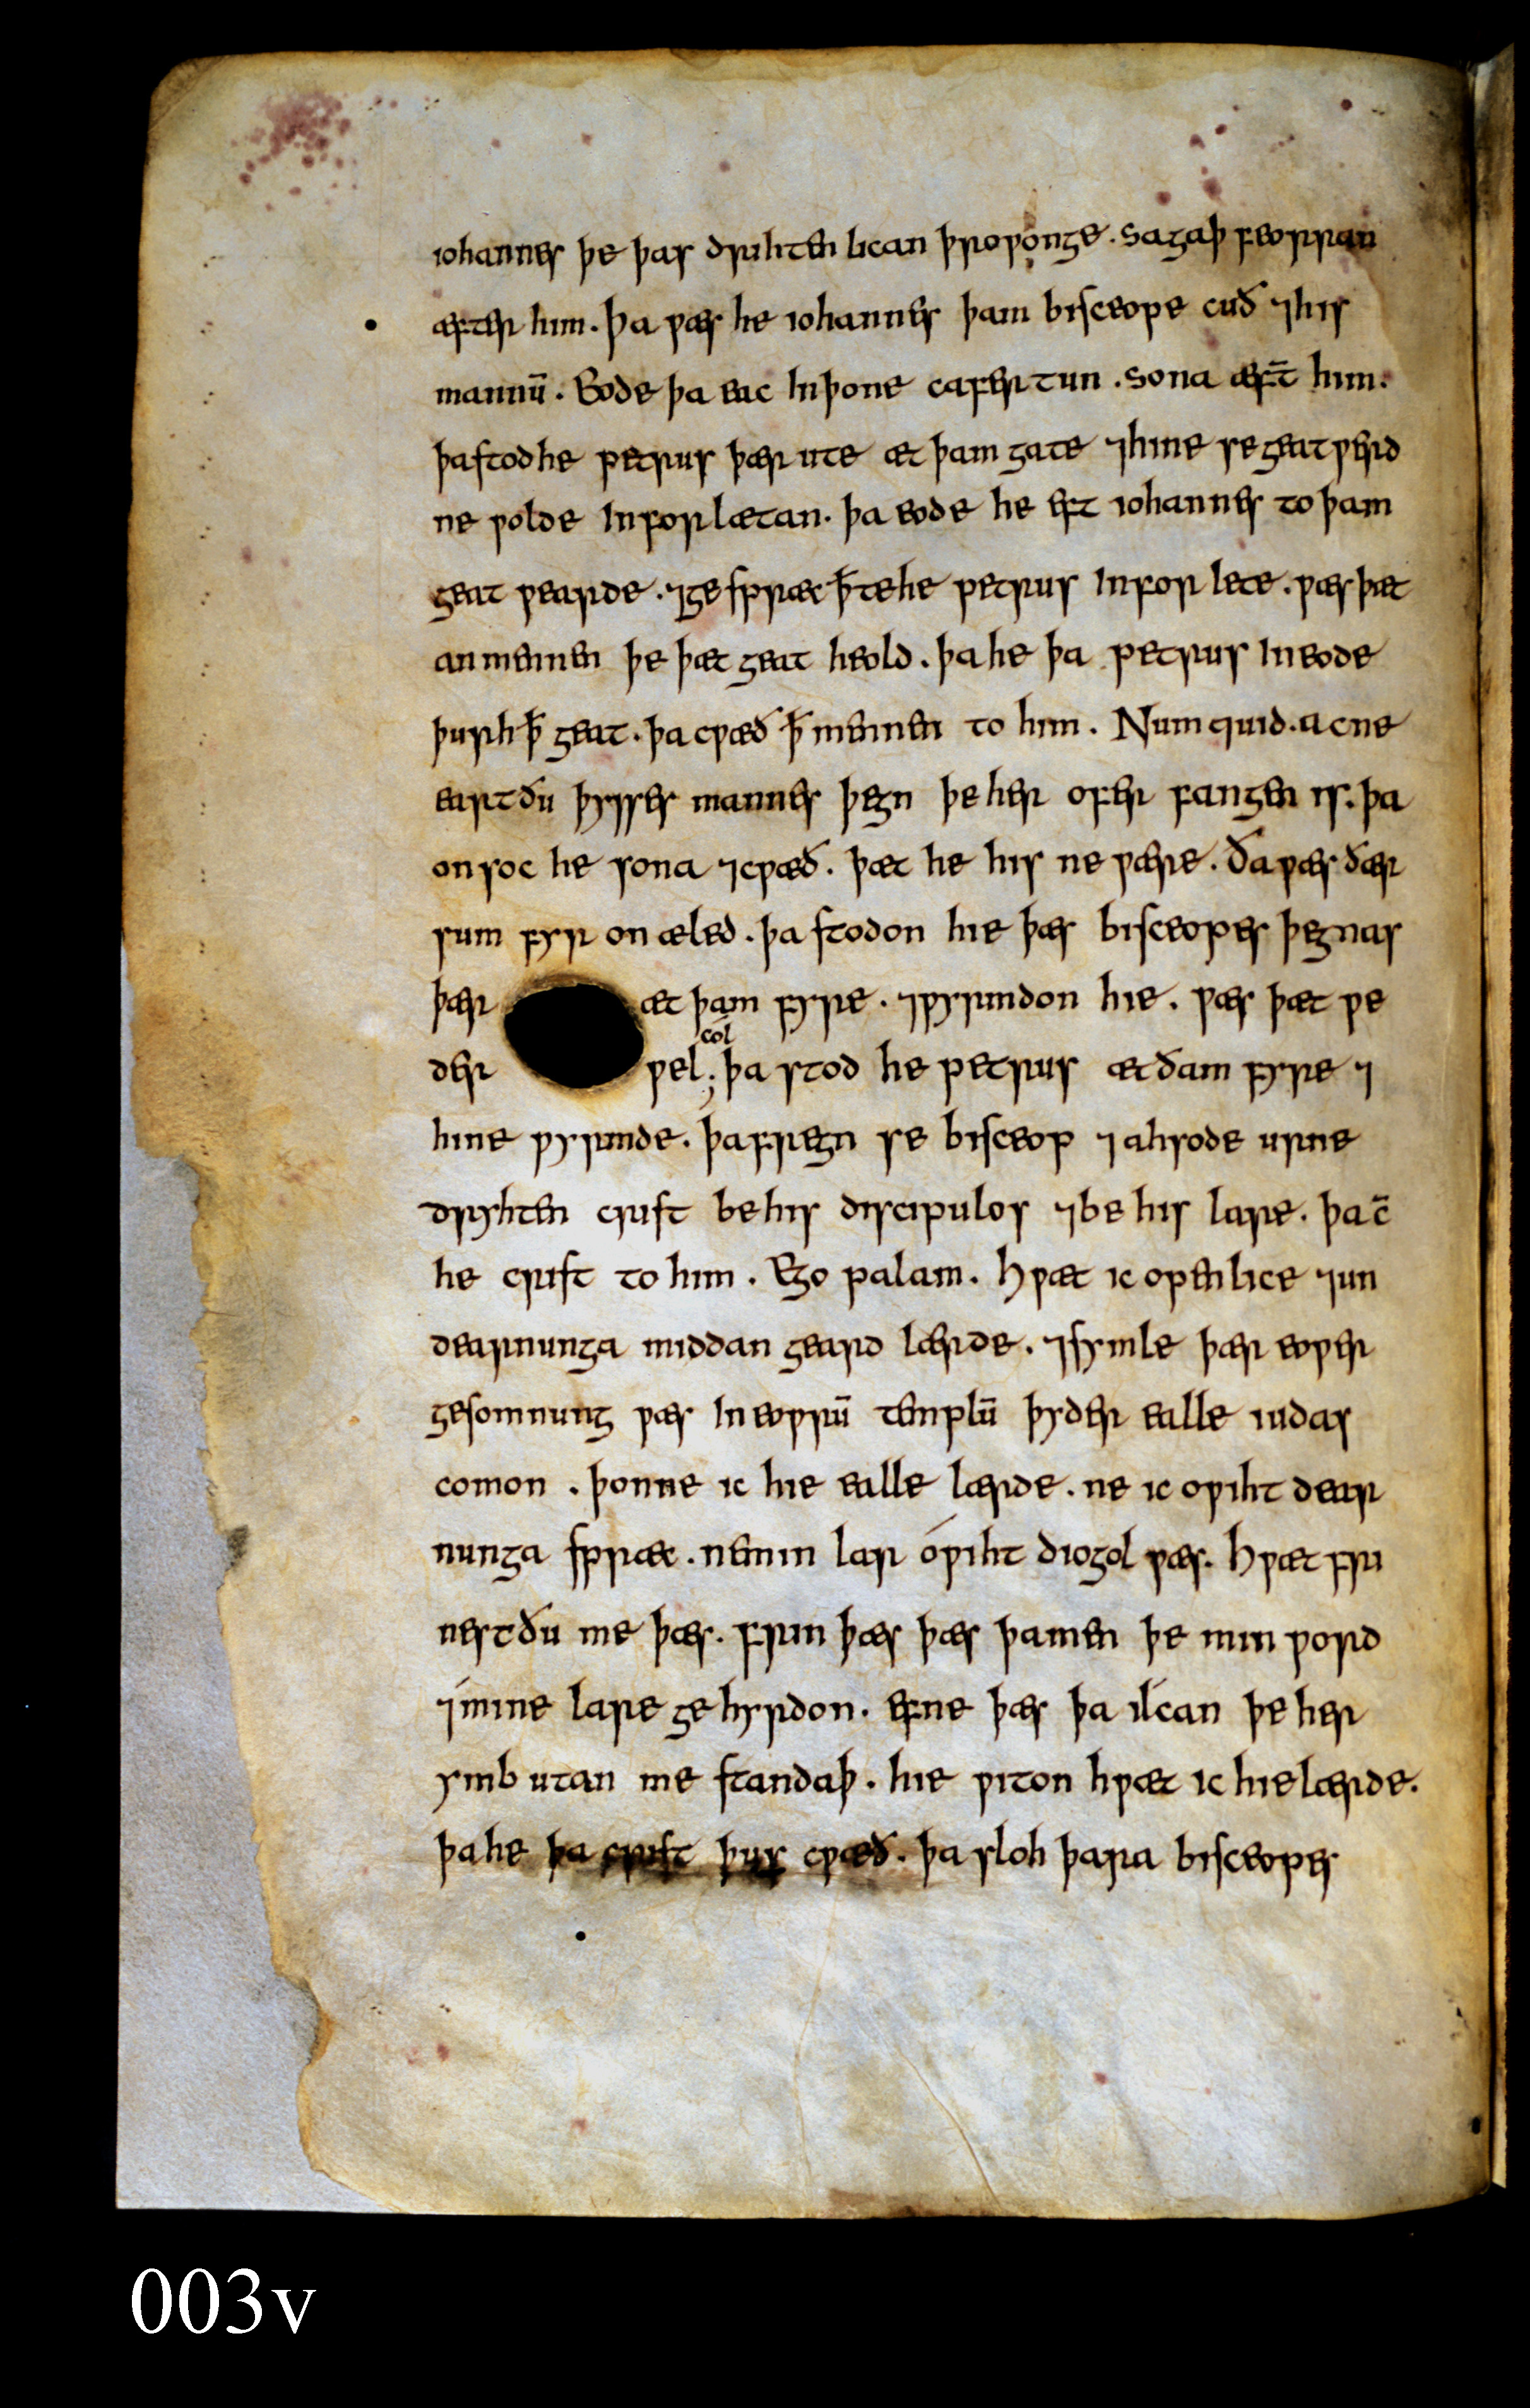 iohannes þe þas drihtenlican þroƿonge . sagaþ feorran
æfter him . þa ƿæs he iohannes þam bisceope cuð ⁊ his
mannū . Eode þa eac In þone cafertun . sona æft̄ him .
þa stod he petrus þær ute æt þam gate ⁊ hine se geatƿerd
ne ƿolde In forlætan . þa eode he eft iohannes to þam
geat ƿearde . ⁊ ge spræc ꝥte he petrus In for lete . ƿæs þæt
an mennen þe þæt geat heold . þa he þa petrus In eode
þurh ꝥ geat . þa cƿæð ꝥ mennen to him . Num quid . ac ne
eart ðu þysses mannes þegn þe her ofer fangen is . þa
onsoc he sona ⁊ cƿæð . þæt he his ne ƿære . Ða ƿæs ðær
sum fyr on æled . þa stodon hie þæs bisceopes þegnas
þær æt þam fyre . ⁊ ƿyrmdon hie . ƿæs þæt ƿe
der ƿel ; col þa stod he petrus æt ðam fyre ⁊
hine ƿyrmde . þa fregn se bisceop ⁊ ahsode urne
dryhten crist be his discipulos ⁊ be his lare . þa c̄
he crist to him . Ego palam . Hƿæt ic openlice ⁊ un
dearnunga middan geard lærde . ⁊ symle þær eoƿer
gesomnung ƿæs In eoƿrū templū þyder ealle iudas
comon . þonne ic hie ealle lærde . ne ic oƿiht dear
nunga spræc . ne min lar óƿiht diogol ƿæs . Hƿæt fri
nest ðu me þæs . frin þæs þæs þa men þe min ƿord
⁊ mine lare ge hyrdon . efne þæs þa ilcan þe her
ymb utan me standaþ . hie ƿiton hƿæt ic hie lærde .
þa he þa crist þus cƿæð . þa sloh þara bisceopes
003v